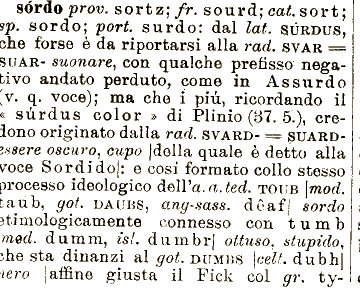 sórdo prov. sortz; fr. sourd; cat. sort;
sp. sordo; port. surdo: dal lat. SÚRDUS,
che forse è da riportarsi alla rad. SVAR =
SUAR- suonare, con qualche prefisso nega-
tivo andato perduto, come in Assurdo
(v. q. voce); ma che i più, ricordando il
« súrdus color » di Plinio (37. 5.), cre-
dono originato dalla rad. SVARD- = SUARD-
essere oscuro, cupo |della quale è detto alla
voce Sordido|: e così formato collo stesso
processo ideologico dell'a.a.ted. TOUB |mod.
taub, got. DAUBS, ang-sass. dêaf| sordo
etimologicamente connesso con tumb
|mod. dumm, isl. dumbr| ottuso, stupido,
che sta dinanzi al got. DUMBS |celt. dubh|
nero |affine giusta il Fick col gr. ty-